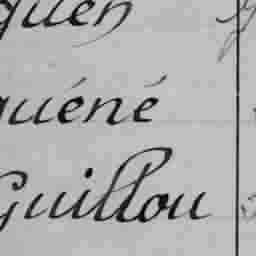 quen
quéné
Guillou